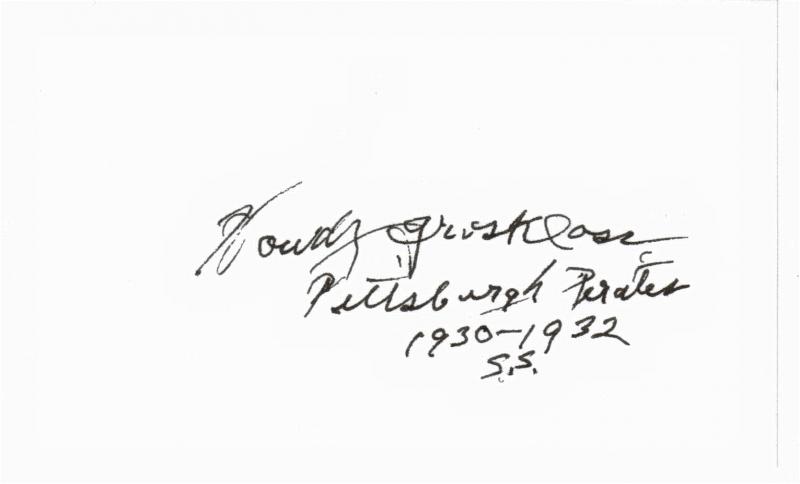 Howdy Groskloss
Pittsburgh Pirates
1930-1932
S.S.